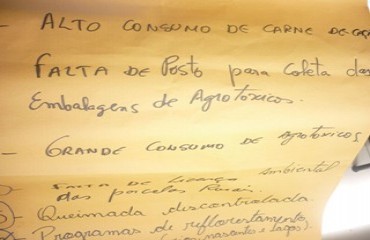 - ALTO CONSUMO DE CARNE DE CAÇA
FALTA DE Posto para Coleta das
Embalagens de Agrotóxicos.
- GRANDE CONSUMO DE AGROTÓXICOS
FALTA DE Licença Ambiental
das parcelas Rurais.
- Queimada descontrolada
Programas de reflorestamento
nascentes e Lagos)